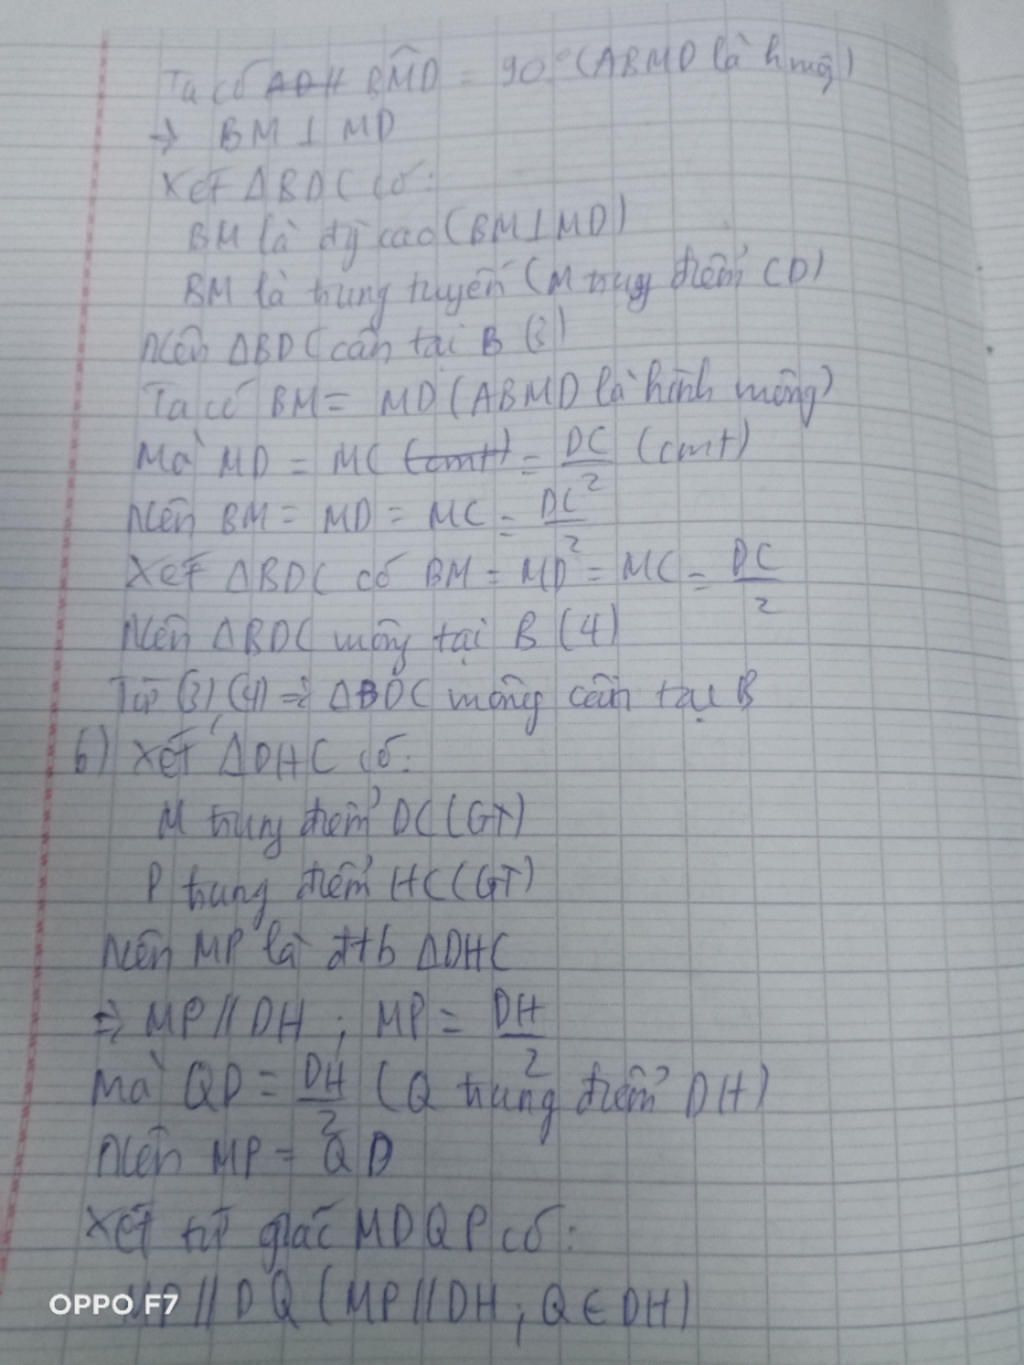 Ta có BMD̂ = 90° (ABMD là hvuông)
→ BM ⊥ MD
Xét ΔBDC có:
BM là đg cao (BM⊥MD)
BM là trung tuyến (M trung điểm CD)
Nên ΔBDC cân tại B (3)
Ta có BM = MD (ABMD là hình vuông)
Mà MD = MC (cmt) = DC/2 (cmt)
Nên BM = MD = MC = DC/2
Xét ΔBDC có BM = MD = MC = DC/2
Nên ΔBDC vuông tại B (4)
Từ (3) (4) ⇒ ΔBDC vuông cân tại B
b) Xét ΔDHC có:
M trung điểm DC (GT)
P trung điểm HC (GT)
Nên MP là đtb ΔDHC
⇒ MP // DH ; MP = DH/2
Mà QD = DH/2 (Q trung điểm DH)
Nên MP = QD
Xét tứ giác MDQP có:
MP // DQ (MP // DH ; Q ∈ DH)
OPPO F7